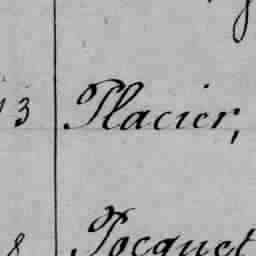 13 Placier,
8 Pocquet